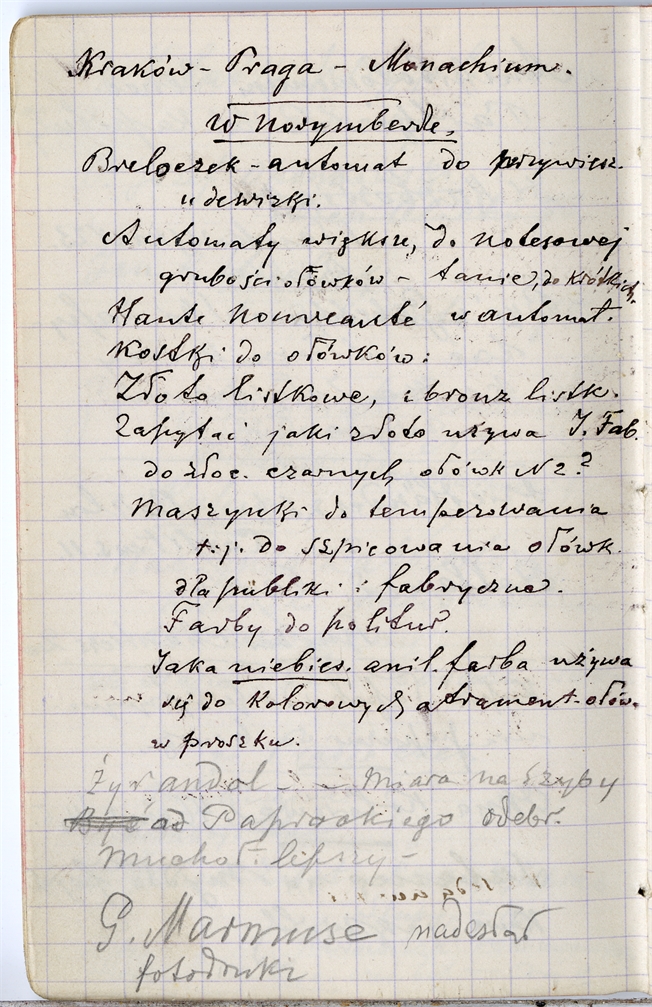 Kraków – Praga – Monachium.
W Norymberdze.
Breloczek - automat do przywiesz.
u dewizki.
Automaty większe, do notesowej
grubości ołówków – tanie, do krótkich.
Haute Nouveauté w automat.
Kostki do ołówków:
Złoto listkowe, i bronz listk.
Zapytać jaki złoto używa J. Fab.
do złoc. czarnych ołówk N 2?
Maszynki do temperowania
t.j. do szpicowania ołówk.
dla publiki i fabryczne.
Farby do politur.
Jaka niebies. anil. farba używa
się do kolorowych atrament. ołów.
w proszku.
Żyrandol – – miara na szyby
Być od Paprockiego odebr.
Muchoł. lepszy –
G. Marmuse nadesłał
fotodruki